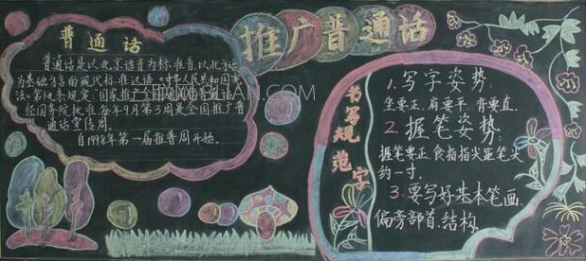 推广普通话
普通话
普通话是以北京语音为标准音,以北方话
为基础方言的现代标准汉语。《中华人民共和国宪
法》第19条规定:国家推广全国通用的普通话。
经国务院批准,每年9月第三周是全国推广普
通话宣传周。
自1998年第一届推普周开始。
书写规范字
1.写字姿势:
坐要正,肩要平,背要直。
2.握笔姿势:
握笔要正,食指指尖距笔尖
约一寸。
3.要写好基本笔画,
偏旁部首、结构。